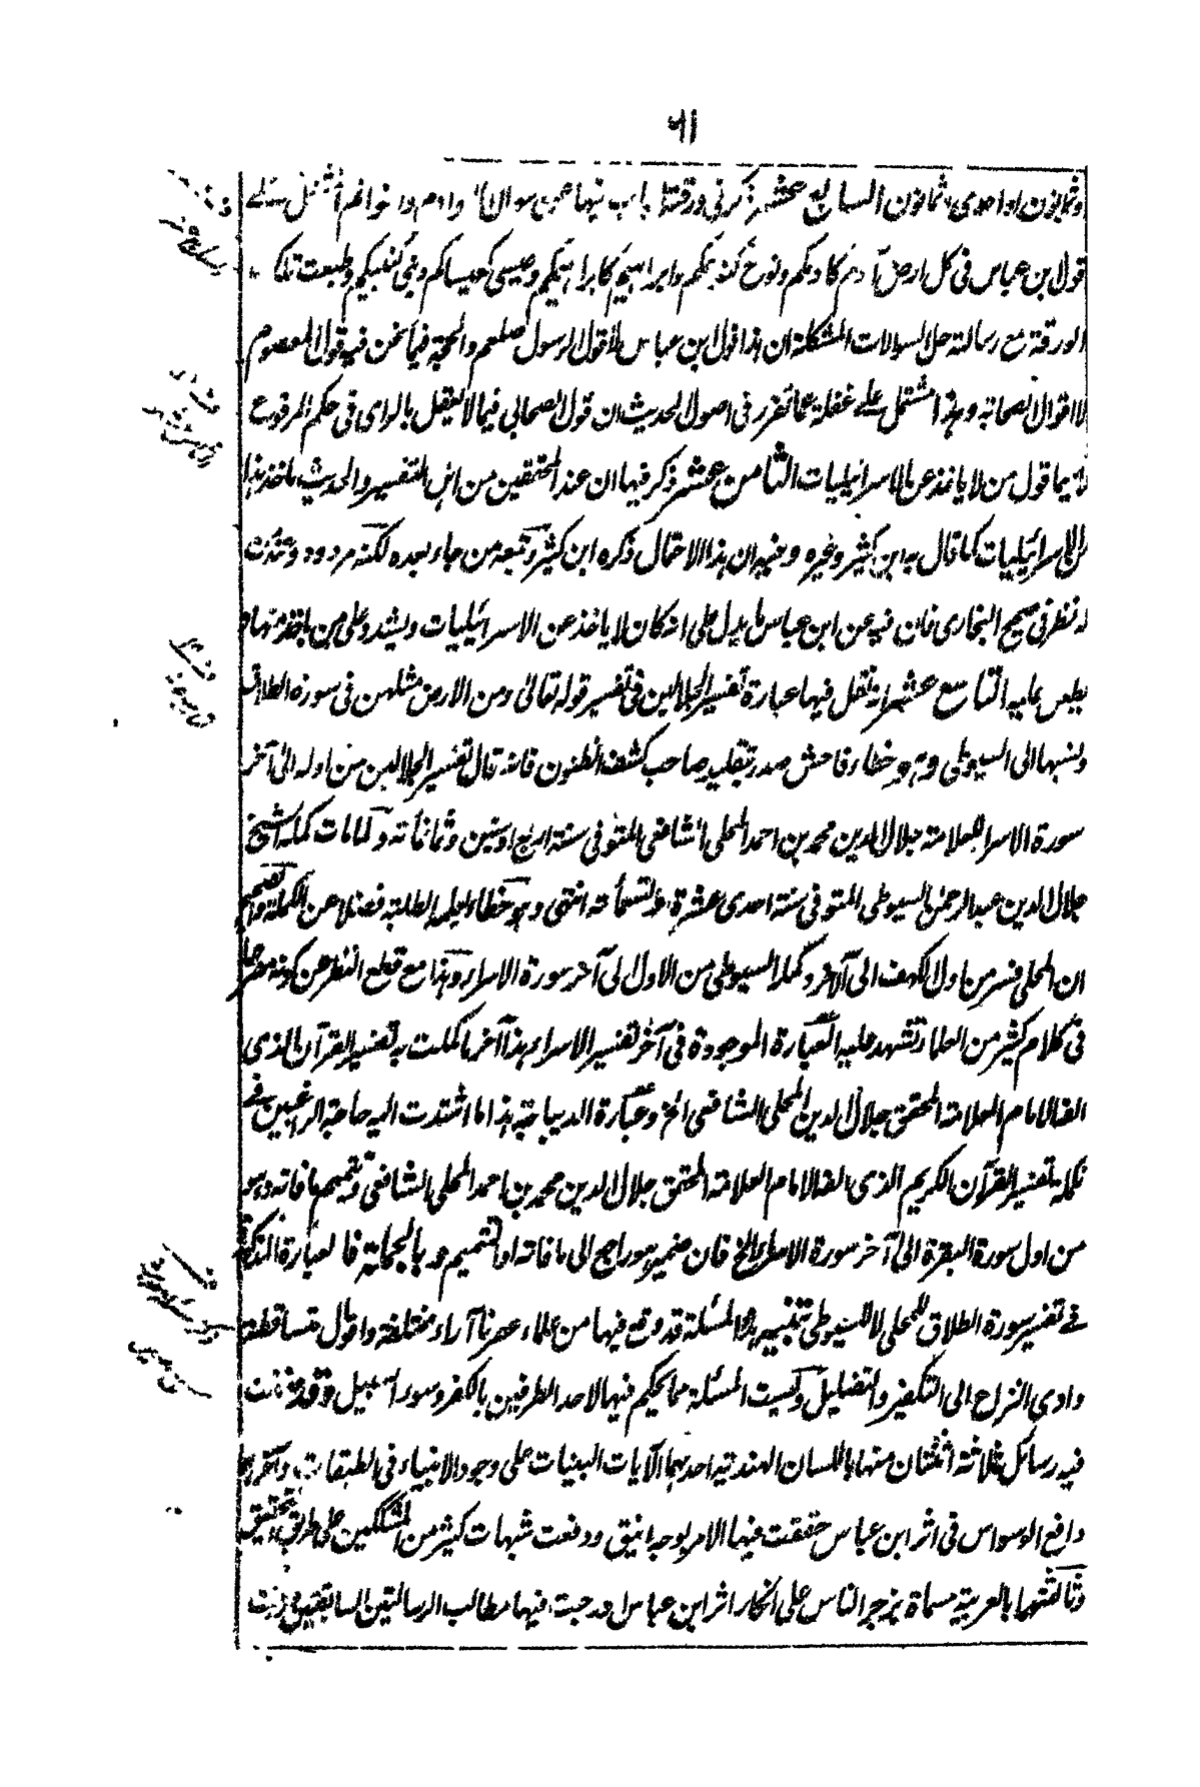 وثمانون او احدى وثمانون السابع عشر ذكر فى ورقة اجاب فيها عن سوالات وادم وخواتم اشتمل على
قول ابن عباس فى كل ارض آدم كادمكم ونوح كنوحكم وابراهيم كابراهيمكم وعيسى كعيساكم ونبى كنبيكم وطبعت تلك
الورقة مع رسالته حل السوالات المشكلة ان هذا قول ابن عباس لا قول الرسول صلعم والحجة فيما نحن فيه قول المعصوم
لا اقوال الصحابة وهذا مشتمل على غفلة عما تقرر فى اصول الحديث ان قول الصحابى فيما لا يعقل بالراى فى حكم المرفوع
لا سيما قول من لا ياخذ عن الاسرائيليات الثامن عشر ذكر فيها ان عند المحققين من اهل التفسير والحديث ماخذ هذا
الاسرائيليات كما قال به ابن كثير وغيره وفيه ان هذا الاحتمال ذكره ابن كثير وتبعه من جاء بعده لكنه مردود
نظر فى صحيح البخارى فان فيه عن ابن عباس ما يدل على انه كان لا ياخذ عن الاسرائيليات ويشدد على من ياخذ منها
يطلس عليه التاسع عشر انه نقل فيها عبارة تفسير الجلالين فى تفسير قوله تعالى ومن الارض مثلهن فى سورة الطلاق
ونسبها الى السيوطى وهو خطاء فاحش صدر بتقليد صاحب كشف الظنون فانه قال تفسير الجلالين من اوله الى آخر
سورة الاسرا للعلامة جلال الدين محمد بن احمد المحلى الشافعى المتوفى سنة اربع وستين وثمانمائة ولما مات كمله الشيخ
جلال الدين عبد الرحمن السيوطى المتوفى سنة احدى عشرة وتسعمائة انتهى وهو خطاء يعلمه الطلبة فضلا عن الكملة والصحيح
ان المحلى فسر من اول الكهف الى الآخر وكمله السيوطى من الاول الى آخر سورة الاسراء وهذا مع قطع النظر عن كونه مصرحا
فى كلام كثير من العلماء تشهد عليه العبارة الموجودة فى آخر تفسير الاسراء هذا آخر ما كملت به تفسير القرآن الذى
الفه الامام العلامة المحقق جلال الدين المحلى الشافعى الخ وعبارة الديباجة هذا ما اشتدت اليه حاجة الراغبين فى
تكملة تفسير القرآن الكريم الذى الفه الامام العلامة المحقق جلال الدين محمد بن احمد المحلى الشافعى وتتميم ما فاته وهو
من اول سورة البقرة الى آخر سورة الاسراء الخ فان ضمير هو راجع الى ما فاته او التتميم وبالجملة فالعبارة المذكورة
فى تفسير سورة الطلاق للمحلى لا للسيوطى تنبيه هذه المسئلة قد وقع فيها من علماء عصرنا آراء مختلفة واقوال متساقطة
وادى النزاع الى التكفير والتضليل وليست المسئلة مما يحكم فيها لاحد الطرفين بالكفر وسوء السبيل وقد الفت
فيه رسائل ثلاثة اثنتان منها باللسان الهندية احدهما الآيات البينات على وجود الانبياء فى الطبقات وآخرها
دافع الوسواس فى اثر ابن عباس حققت فيها الامر بوجه انيق ودفعت شبهات كثير من المشككين على طريق التحقيق
وثالثتها بالعربية مسماة بزجر الناس على انكار اثر ابن عباس ادرجت فيها مطالب الرسالتين السابقتين